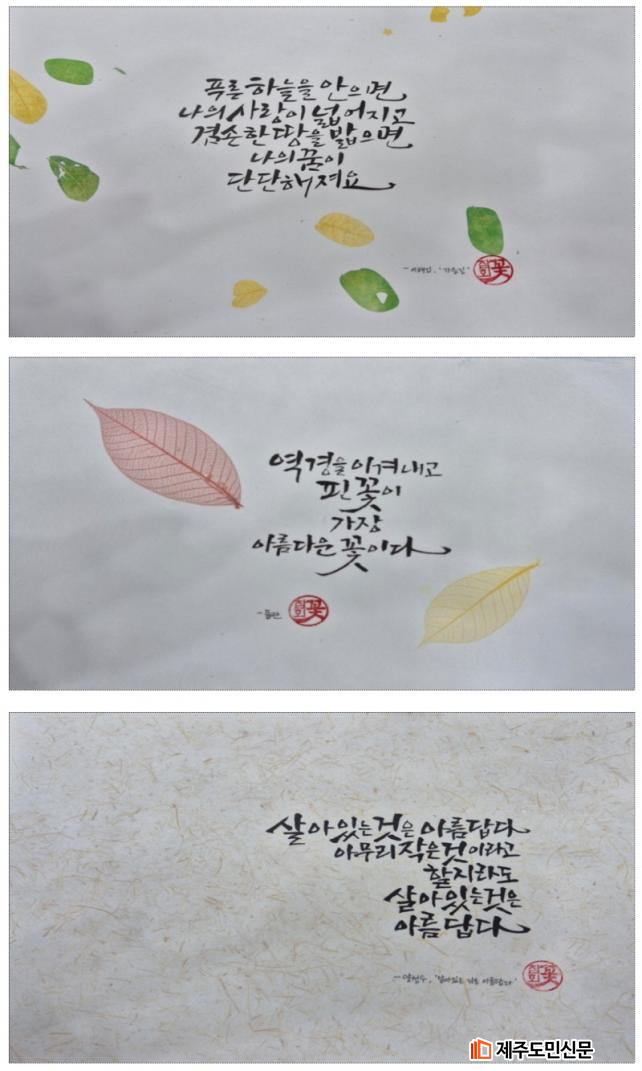 푸른 하늘을 안으면
나의 사랑이 넓어지고
겸손한 땅을 밟으면
나의 꿈이
단단해져요
- 이해인, '가을길'
꽃
역경을 이겨내고
핀 꽃이
가장
아름다운 꽃이다
- 뮬란
꽃
살아있는것은 아름답다
아무리 작은것이라고
할지라도
살아있는것은
아름답다
- 양성우, '살아있는 것은 아름답다'
꽃
제주도민신문